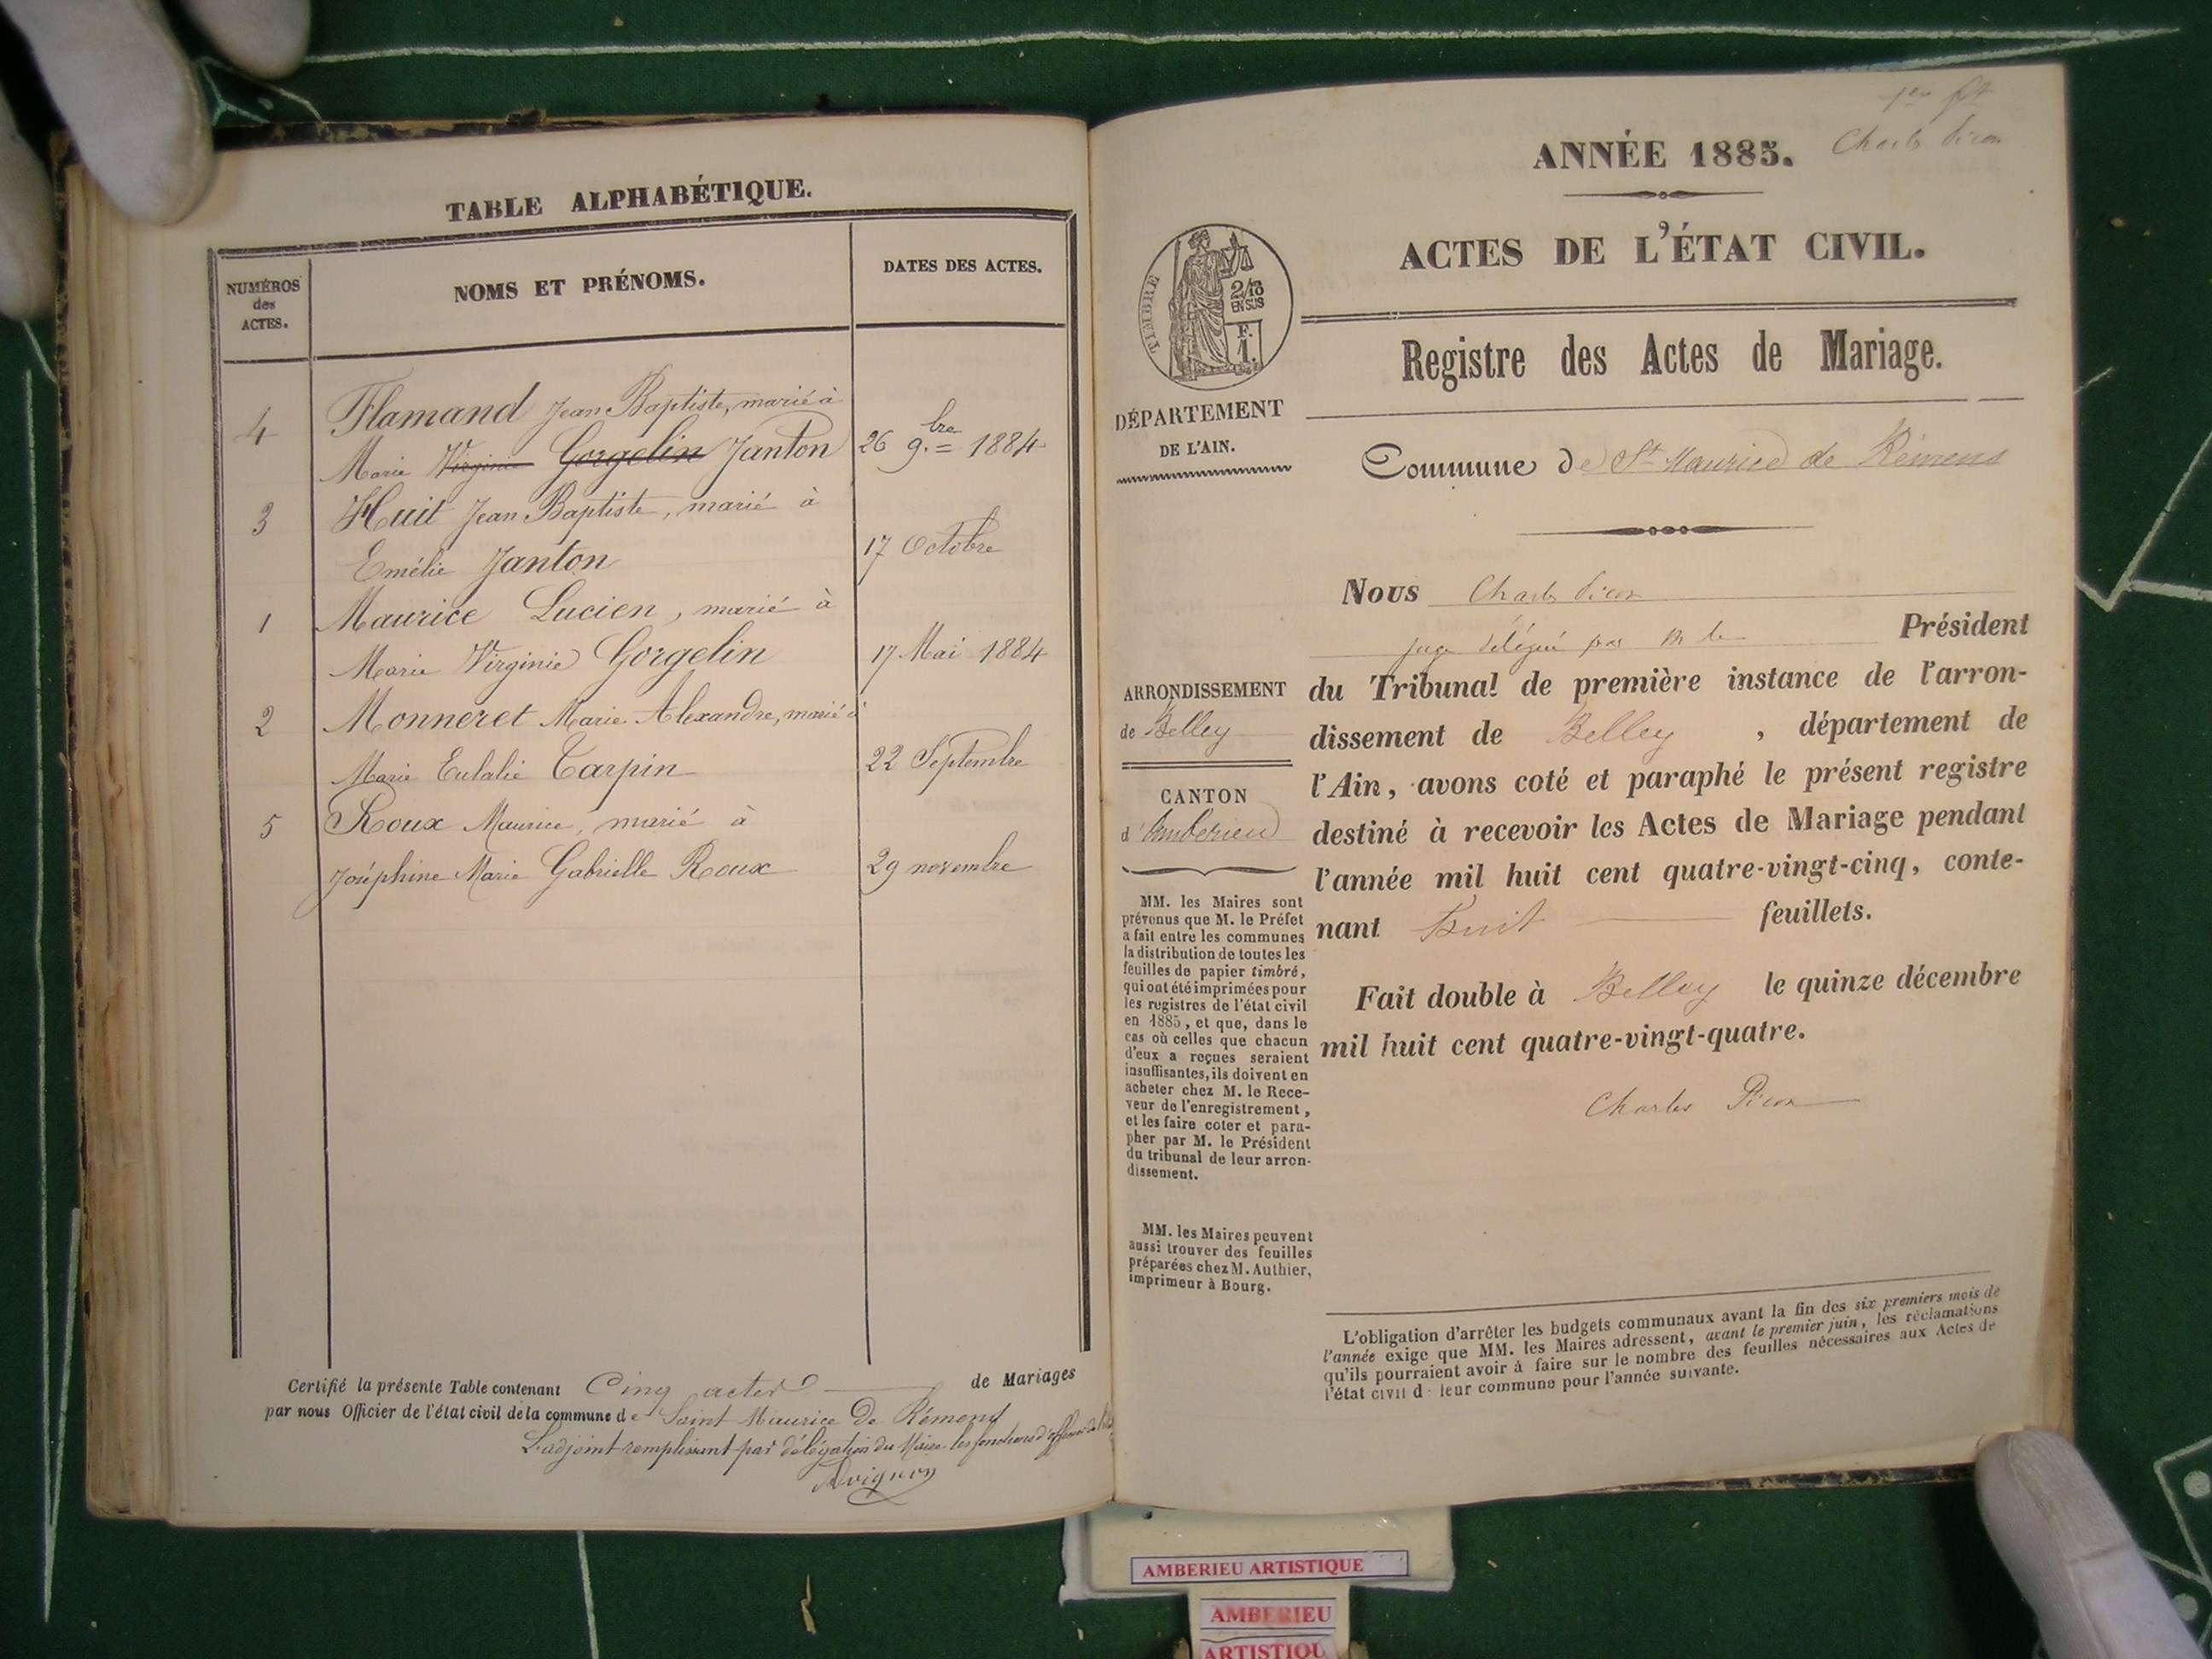 TABLE ALPHABÉTIQUE.
NUMÉROS
des
ACTES.
NOMS ET PRÉNOMS.
DATES DES ACTES.
4
Flamand Jean Baptiste, marié à
Marie Virginie Gorgelin Janton
26 9.bre 1884
3
Huit Jean Baptiste, marié à
Emélie Janton
17 Octobre
1
Maurice Lucien, marié à
Marie Virginie Gorgelin
17 Mai 1884
2
Monneret Marie Alexandre, marié à
Marie Eulalie Carpin
22 Septembre
5
Roux Maurice, marié à
Joséphine Marie Gabrielle Roux
29 novembre
Certifié la présente Table contenant Cinq actes de Mariages
par nous Officier de l'état civil de la commune de Saint Maurice De Rémens
L'adjoint remplissant par délégation du Maire les fonctions d'officier de l'
Avignon
1er
Charles Picon
ANNÉE 1885.
ACTES DE L'ÉTAT CIVIL.
TIMBRE
2/10
EN SUS
F.
1.
Registre des Actes de Mariage.
DÉPARTEMENT
DE L'AIN.
Commune de St Maurice de Rémens
Nous Charles Picon
juge délégué par M le Président
du Tribunal de première instance de l'arron-
dissement de Belley, département de
l'Ain, avons coté et paraphé le présent registre
destiné à recevoir les Actes de Mariage pendant
l'année mil huit cent quatre-vingt-cinq, conte-
nant huit feuillets.
Fait double à Belley le quinze décembre
mil huit cent quatre-vingt-quatre.
Charles Picon
ARRONDISSEMENT
de Belley
CANTON
d'Ambérieu
MM. les Maires sont
prévenus que M. le Préfet
a fait entre les communes
la distribution de toutes les
feuilles de papier timbré,
qui ont été imprimées pour
les registres de l'état civil
en 1885, et que, dans le
cas où celles que chacun
d'eux a reçues seraient
insuffisantes, ils doivent en
acheter chez M. le Rece-
veur de l'enregistrement,
et les faire coter et para-
pher par M. le Président
du tribunal de leur arron-
dissement.
MM. les Maires peuvent
aussi trouver des feuilles
préparées chez M. Authier,
imprimeur à Bourg.
L'obligation d'arrêter les budgets communaux avant la fin des six premiers mois de
l'année exige que MM. les Maires adressent, avant le premier juin, les réclamations
qu'ils pourraient avoir à faire sur le nombre des feuilles nécessaires aux Actes de
l'état civil d leur commune pour l'année suivante.
AMBERIEU ARTISTIQUE
AMBERIEU
ARTISTIQU